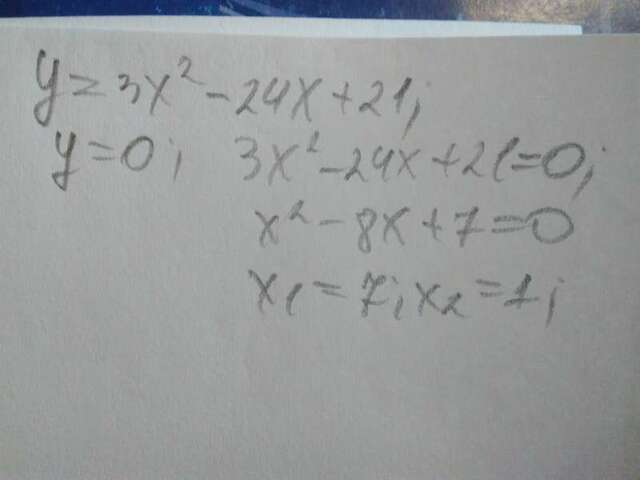 y = 3x² - 24x + 21;
y = 0; 3x² - 24x + 21 = 0;
x² - 8x + 7 = 0
x₁ = 7; x₂ = 1;